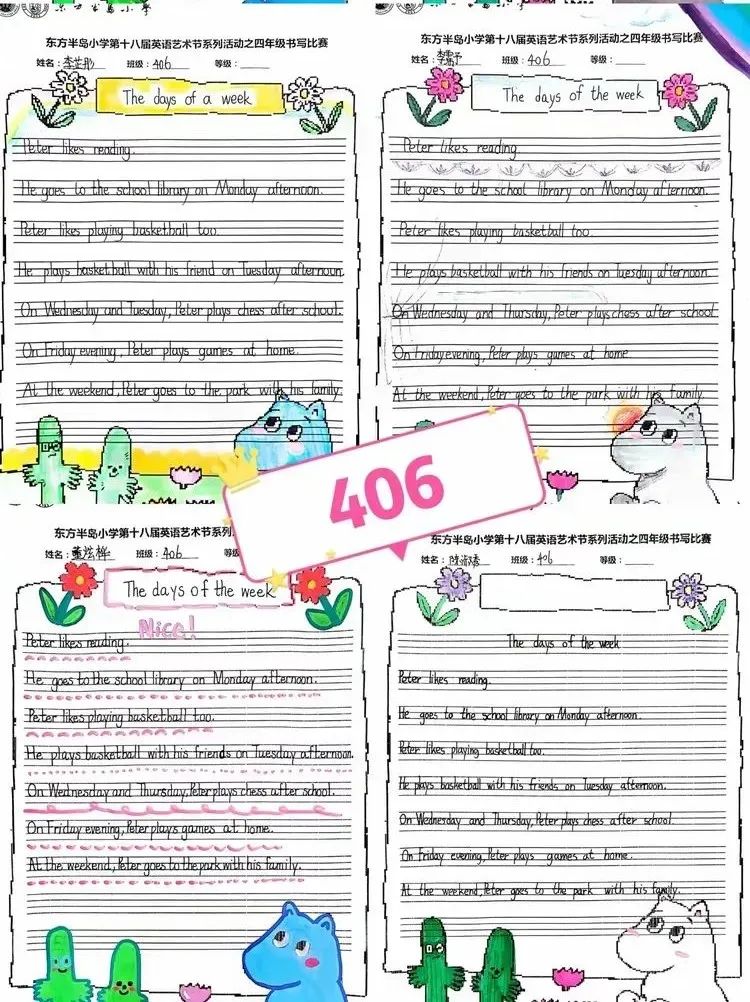 东方半岛小学第十八届英语艺术节系列活动之四年级书写比赛
姓名： 班级：406 等级：
The days of a week
Peter likes reading.
He goes to the school library on Monday afternoon.
Peter likes playing basketball too.
He plays basketball with his friend on Tuesday afternoon.
On Wednesday and Tuesday, Peter plays chess after school.
On Friday evening, Peter plays games at home.
At the weekend, Peter goes to the park with his family.
东方半岛小学第十八届英语艺术节系列活动之四年级书写比赛
姓名： 班级：406 等级：
The days of the week
Peter likes reading.
He goes to the school library on Monday afternoon.
Peter likes playing basketball too.
He plays basketball with his friends on Tuesday afternoon.
On Wednesday and Thursday, Peter plays chess after school.
On Friday evening, Peter plays games at home
At the weekend, Peter goes to the park with his family.
406
东方半岛小学第十八届英语艺术节系列
姓名： 班级：406 等级
The days of the week
Nice!
Peter likes reading.
He goes to the school library on Monday afternoon.
Peter likes playing basketball too.
He plays basketball with his friends on Tuesday afternoon.
On Wednesday and Thursday, Peter plays chess after school.
On Friday evening, Peter plays games at home.
At the weekend, Peter goes to the park with his family.
东方半岛小学第十八届英语艺术节系列活动之四年级书写比赛
姓名： 班级：406 等级：
The days of the week
Peter likes reading.
He goes to the school library on Monday afternoon.
Peter likes playing basketball too.
He plays basketball with his friends on Tuesday afternoon.
On Wednesday and Thursday, Peter plays chess after school.
On Friday evening, Peter plays games at home.
At the weekend, Peter goes to the park with his family.